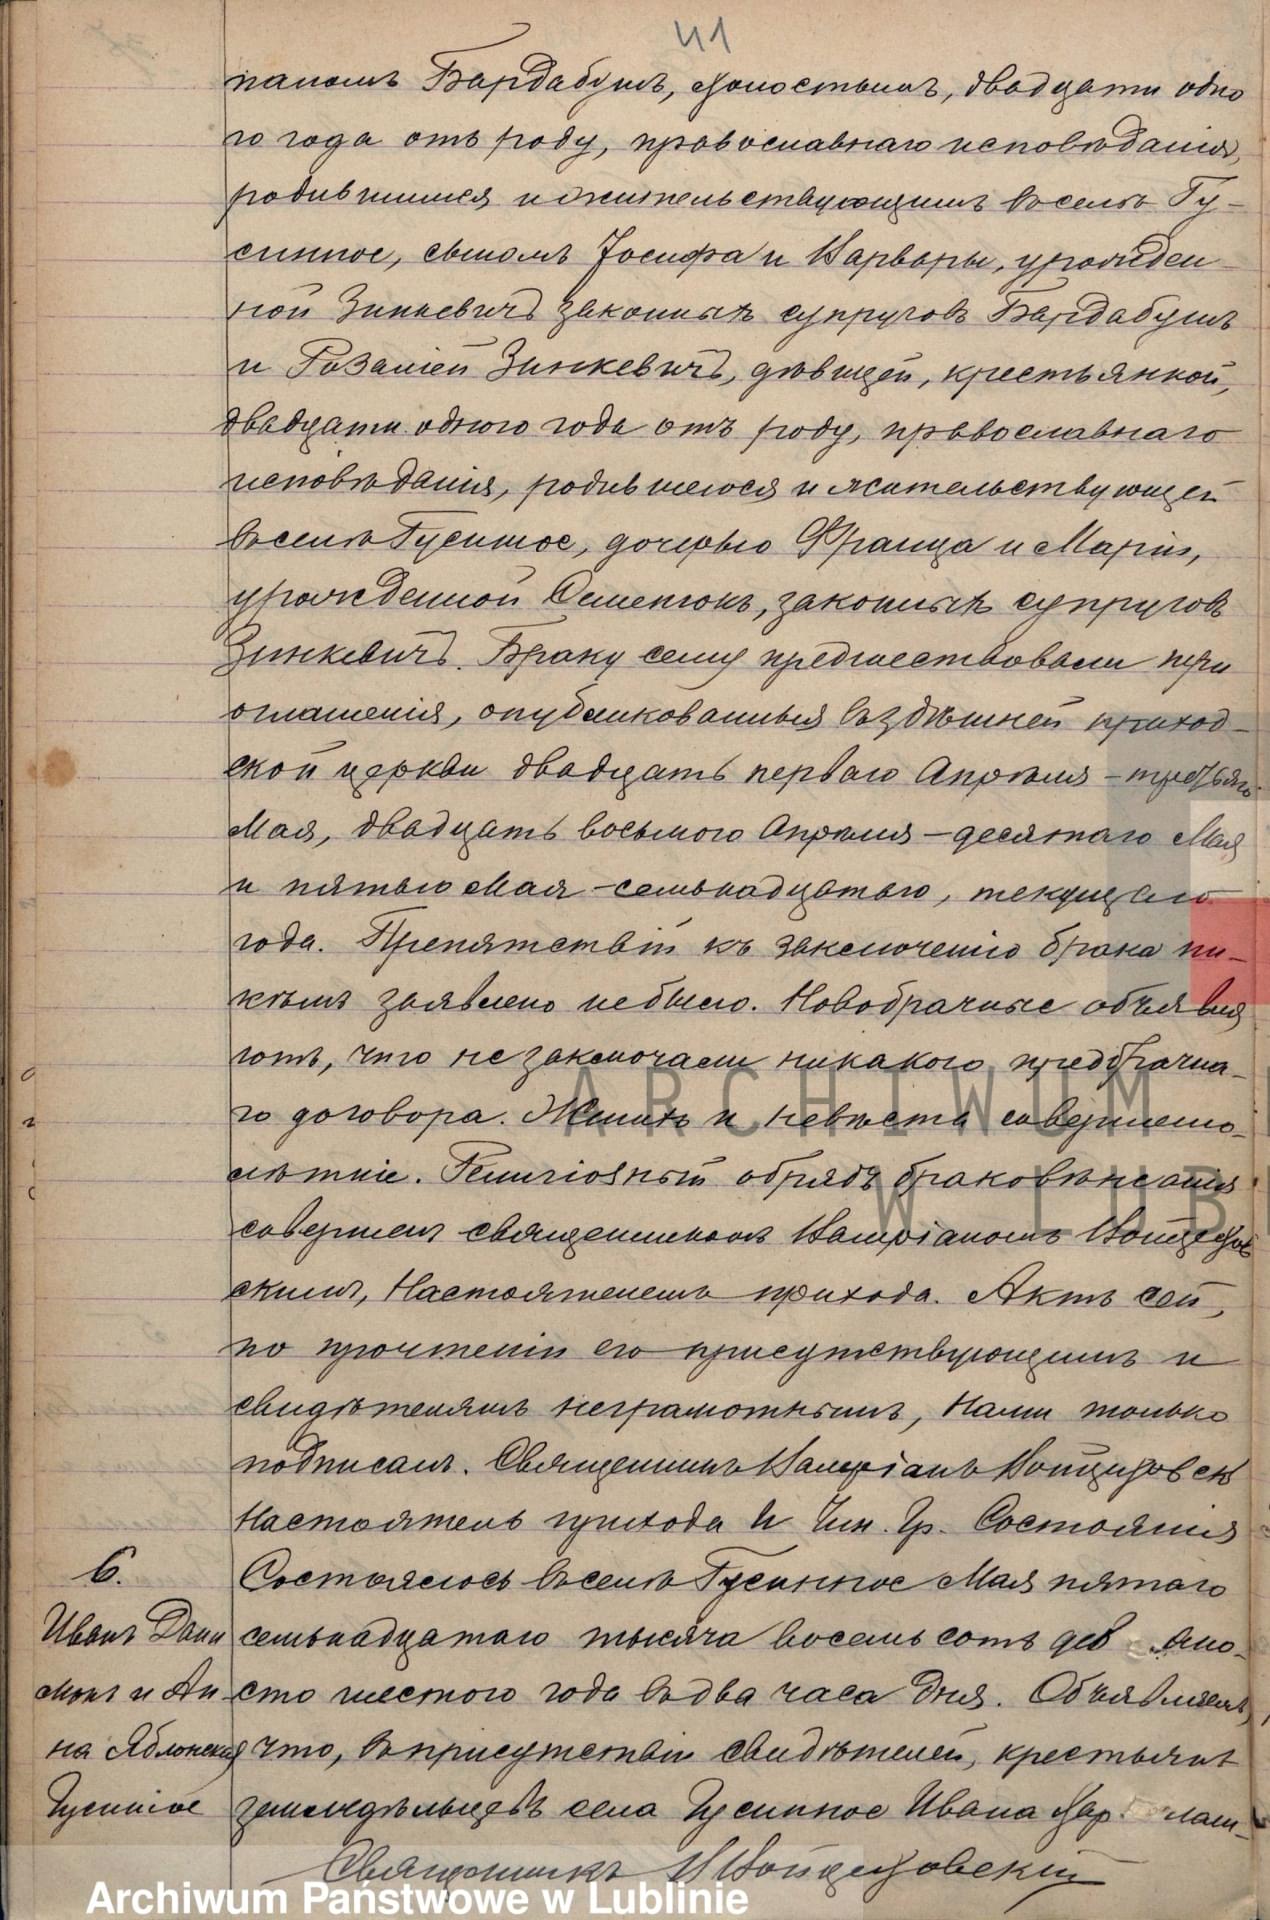 41
паномъ Бардабушъ, холостымъ, двадцати одно
го года отъ роду, православнаго исповѣданія,
родившимся и жительствующимъ въ селѣ Гу-
синное, сыномъ Іосифа и Варвары, урожден-
ной Зинкевичъ законныхъ супруговъ Бардабушъ
и Розаліей Зинкевичъ, дѣвицей, крестьянкой,
двадцати одного года отъ роду, православнаго
исповѣданія, родившеюся и жительствующей
въ селѣ Гусинное, дочерью Франца и Маріи,
урожденной Семенюкъ, законныхъ супруговъ
Зинкевичъ. Браку сему предшествовали три
оглашенія, опубликованныя въ здѣшней приход-
ской церкви двадцать перваго Апрѣля - третьяго
Мая, двадцать восьмого Апрѣля - десятаго Мая
и пятаго Мая - семьнадцатаго, текущаго
года. Препятствій къ заключенію брака ни-
кѣмъ заявлено небыло. Новобрачные объявля
ютъ, что не заключали никакого предбрачна-
го договора. Женихъ и невѣста совершено-
лѣтніе. Религіозный обрядъ бракосочетанія
совершенъ священникомъ Валеріаномъ Войцехов
скимъ, Настоятелемъ прихода. Актъ сей,
по прочтеніи его присутствующимъ и
свидѣтелямъ неграмотнымъ, Нами только
подписанъ. Священникъ Валеріанъ Войцеховск
Настоятель прихода и Чин. Гр. Состоянія
6.
Иванъ Дани
люкъ и Ан-
на Яблонская
Гусинное
Состоялось въ селѣ Гусинное Мая пятаго
семьнадцатаго тысяча восемьсотъ дев яно-
сто шестого года въ два часа дня. Объявляемъ,
что, въ присутствіи свидѣтелей, крестьянъ
земледѣльцевъ села Гусинное Ивана
Священникъ В Войцеховскій
ARCHIWUM
W LUB
Archiwum Państwowe w Lublinie